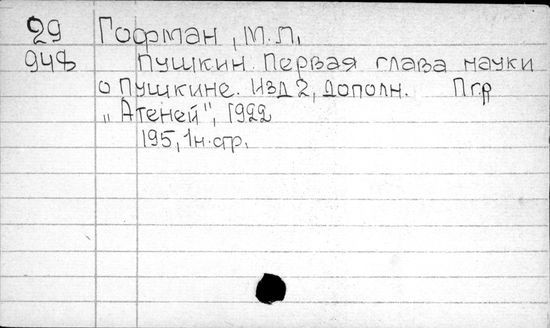 29 Гофман, М.Л.
948 Пушкин. Первая глава науки
о Пушкине. Изд 2, дополн. Пгр
„Атеней", 1922
195, 1н.стр.